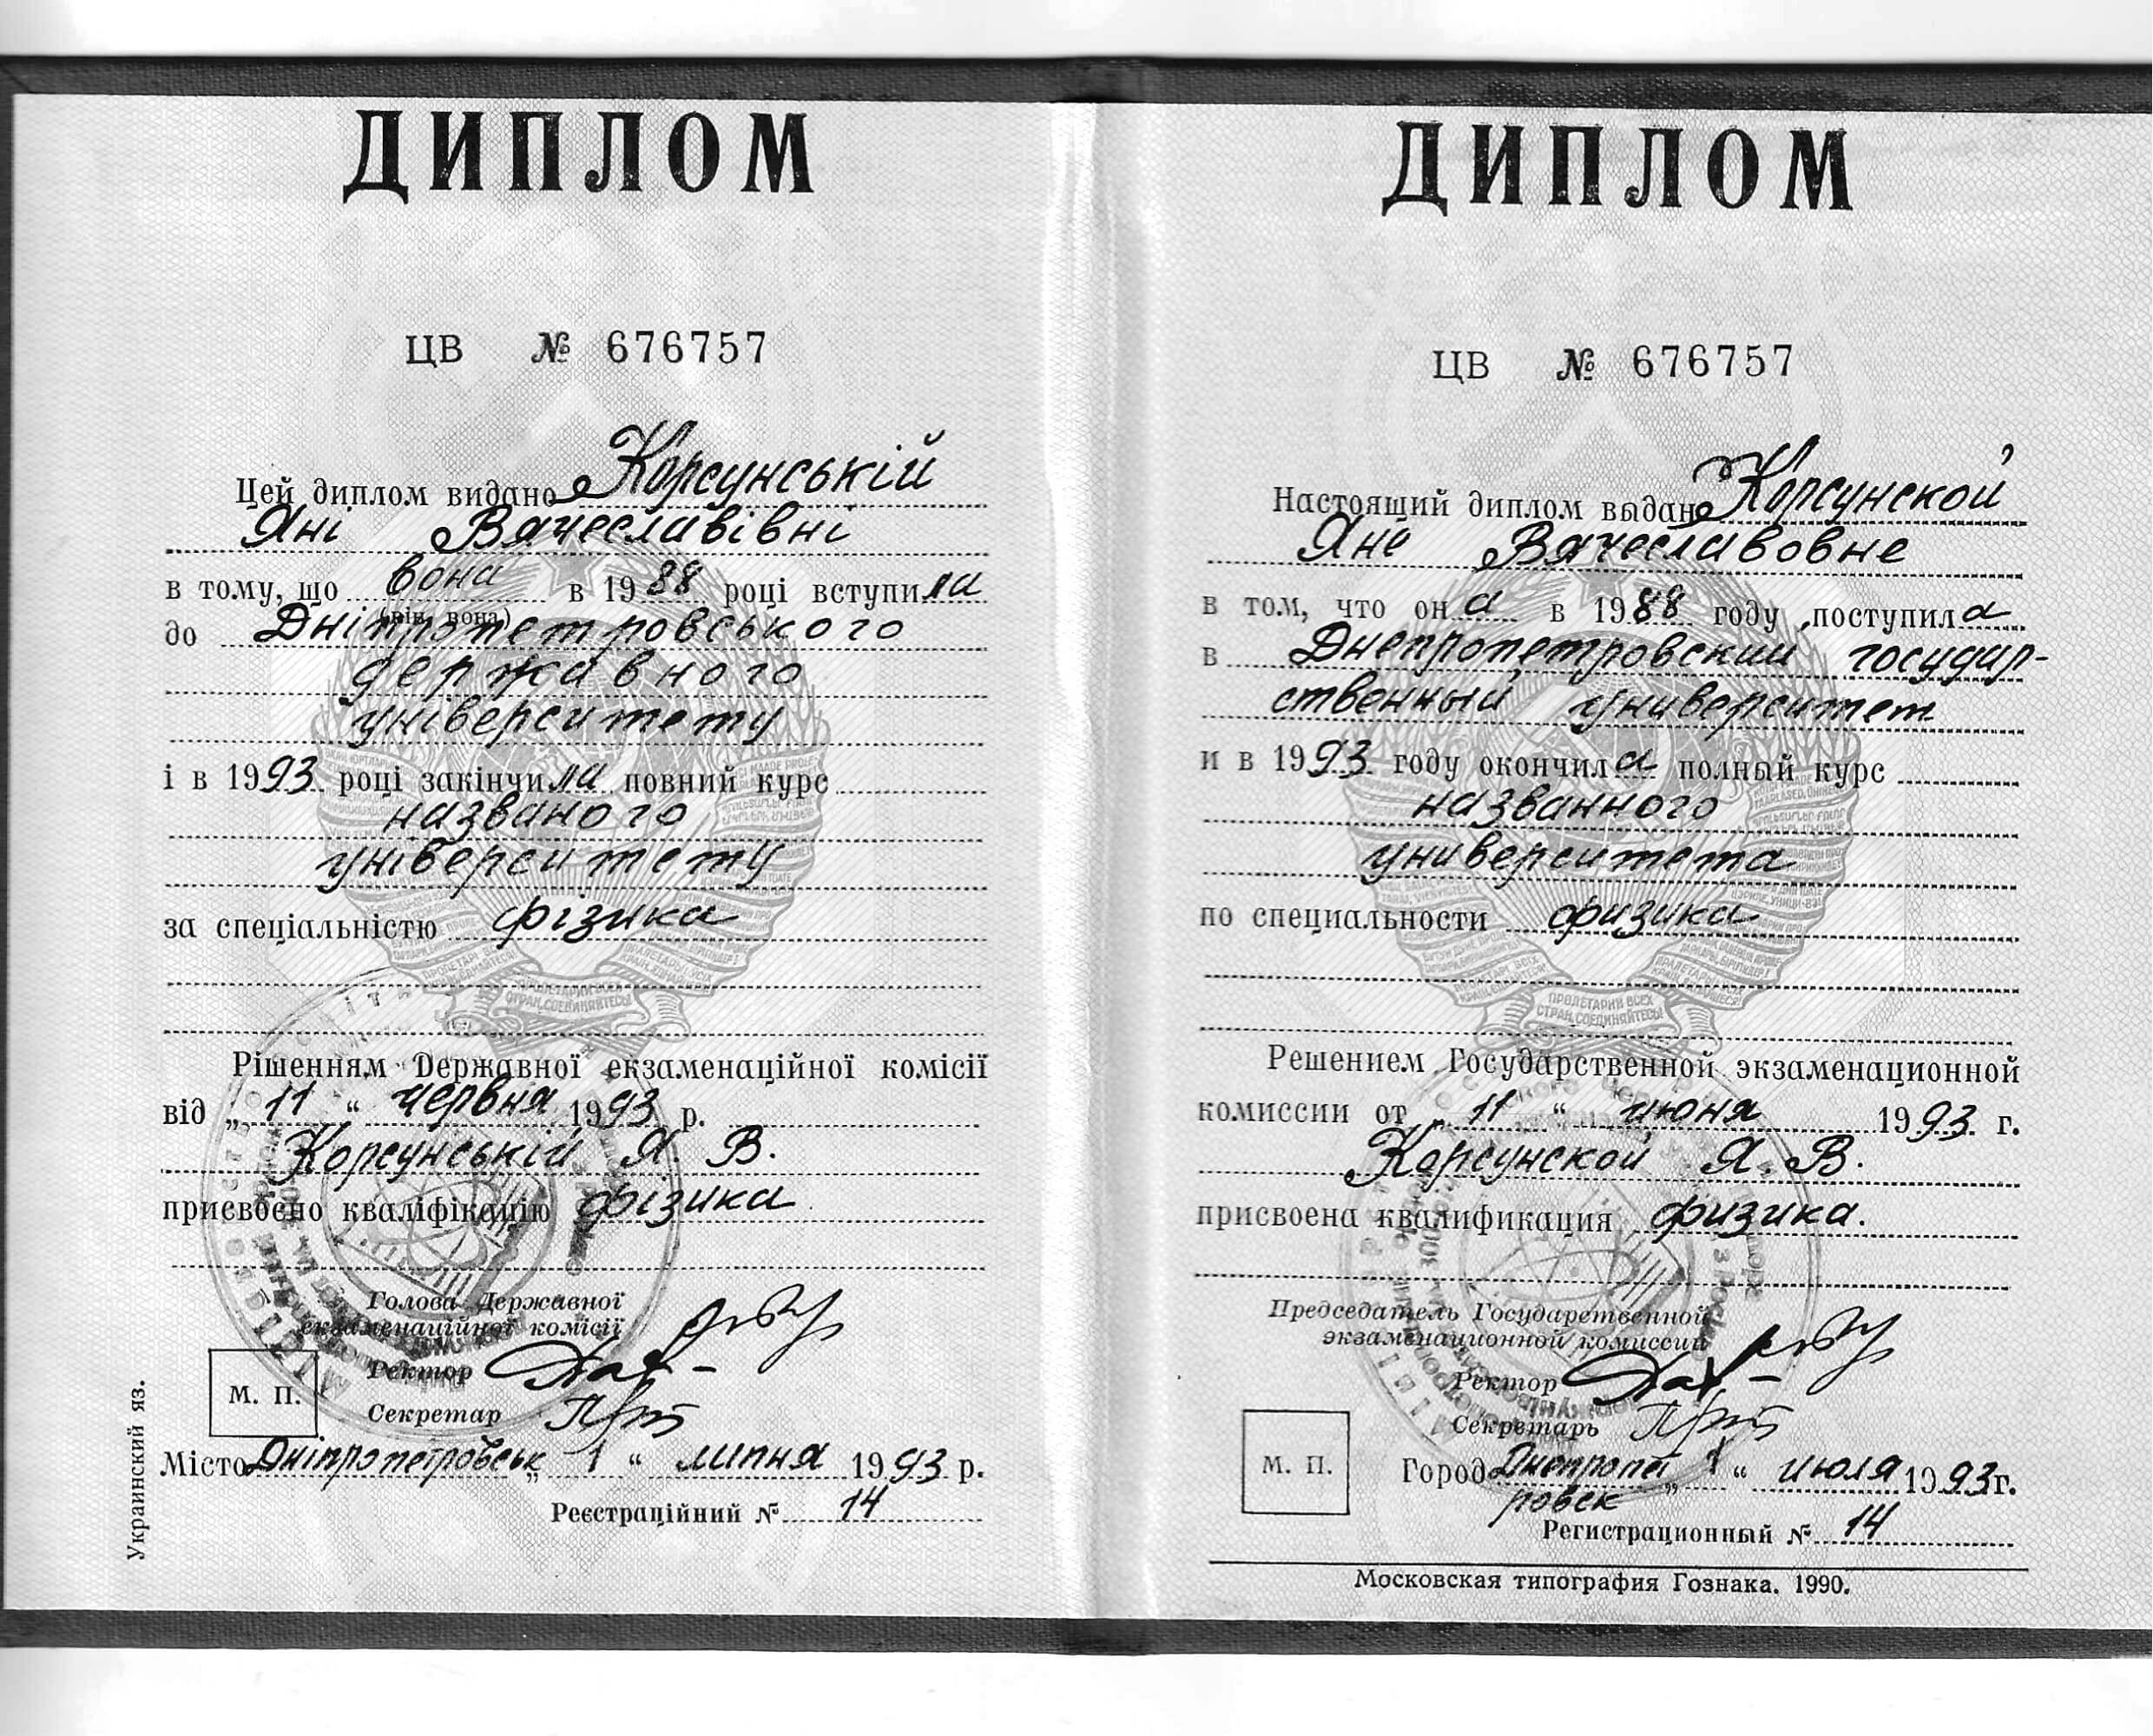 ДИПЛОМ
ЦВ № 676757
Цей диплом видано Корсунській
Яні Вячеславівні
в тому, що вона в 1988 році вступила
(він, вона)
до Дніпропетровського
державного
університету
і в 1993 році закінчила повний курс
названого
університету
за спеціальністю фізика
ПРОЛЕТАРИИ ВСЕХ
СТРАН, СОЕДИНЯЙТЕСЬ!
Рішенням Державної екзаменаційної комісії
від „ 11 “ червня 1993 р.
Корсунській Я. В.
присвоєно кваліфікацію фізика
Голова Державної
екзаменаційної комісії
Ректор
Секретар
М. П.
Місто Дніпропетровськ „ 1 “ липня 1993 р.
Реєстраційний № 14
Украинский яз.
ДИПЛОМ
ЦВ № 676757
Настоящий диплом выдан Корсунской
Яне Вячеславовне
в том, что она в 1988 году поступила
в Днепропетровский государ-
ственный университет
и в 1993 году окончила полный курс
названного
университета
по специальности физика
ПРОЛЕТАРИИ ВСЕХ
СТРАН, СОЕДИНЯЙТЕСЬ!
Решением Государственной экзаменационной
комиссии от „ 11 “ июня 1993 г.
Корсунской Я. В.
присвоена квалификация физика.
Председатель Государственной
экзаменационной комиссии
Ректор
Секретарь
М. П.
Город Днепропет „ 1 “ июля 1993 г.
ровск
Регистрационный № 14
Московская типография Гознака. 1990.